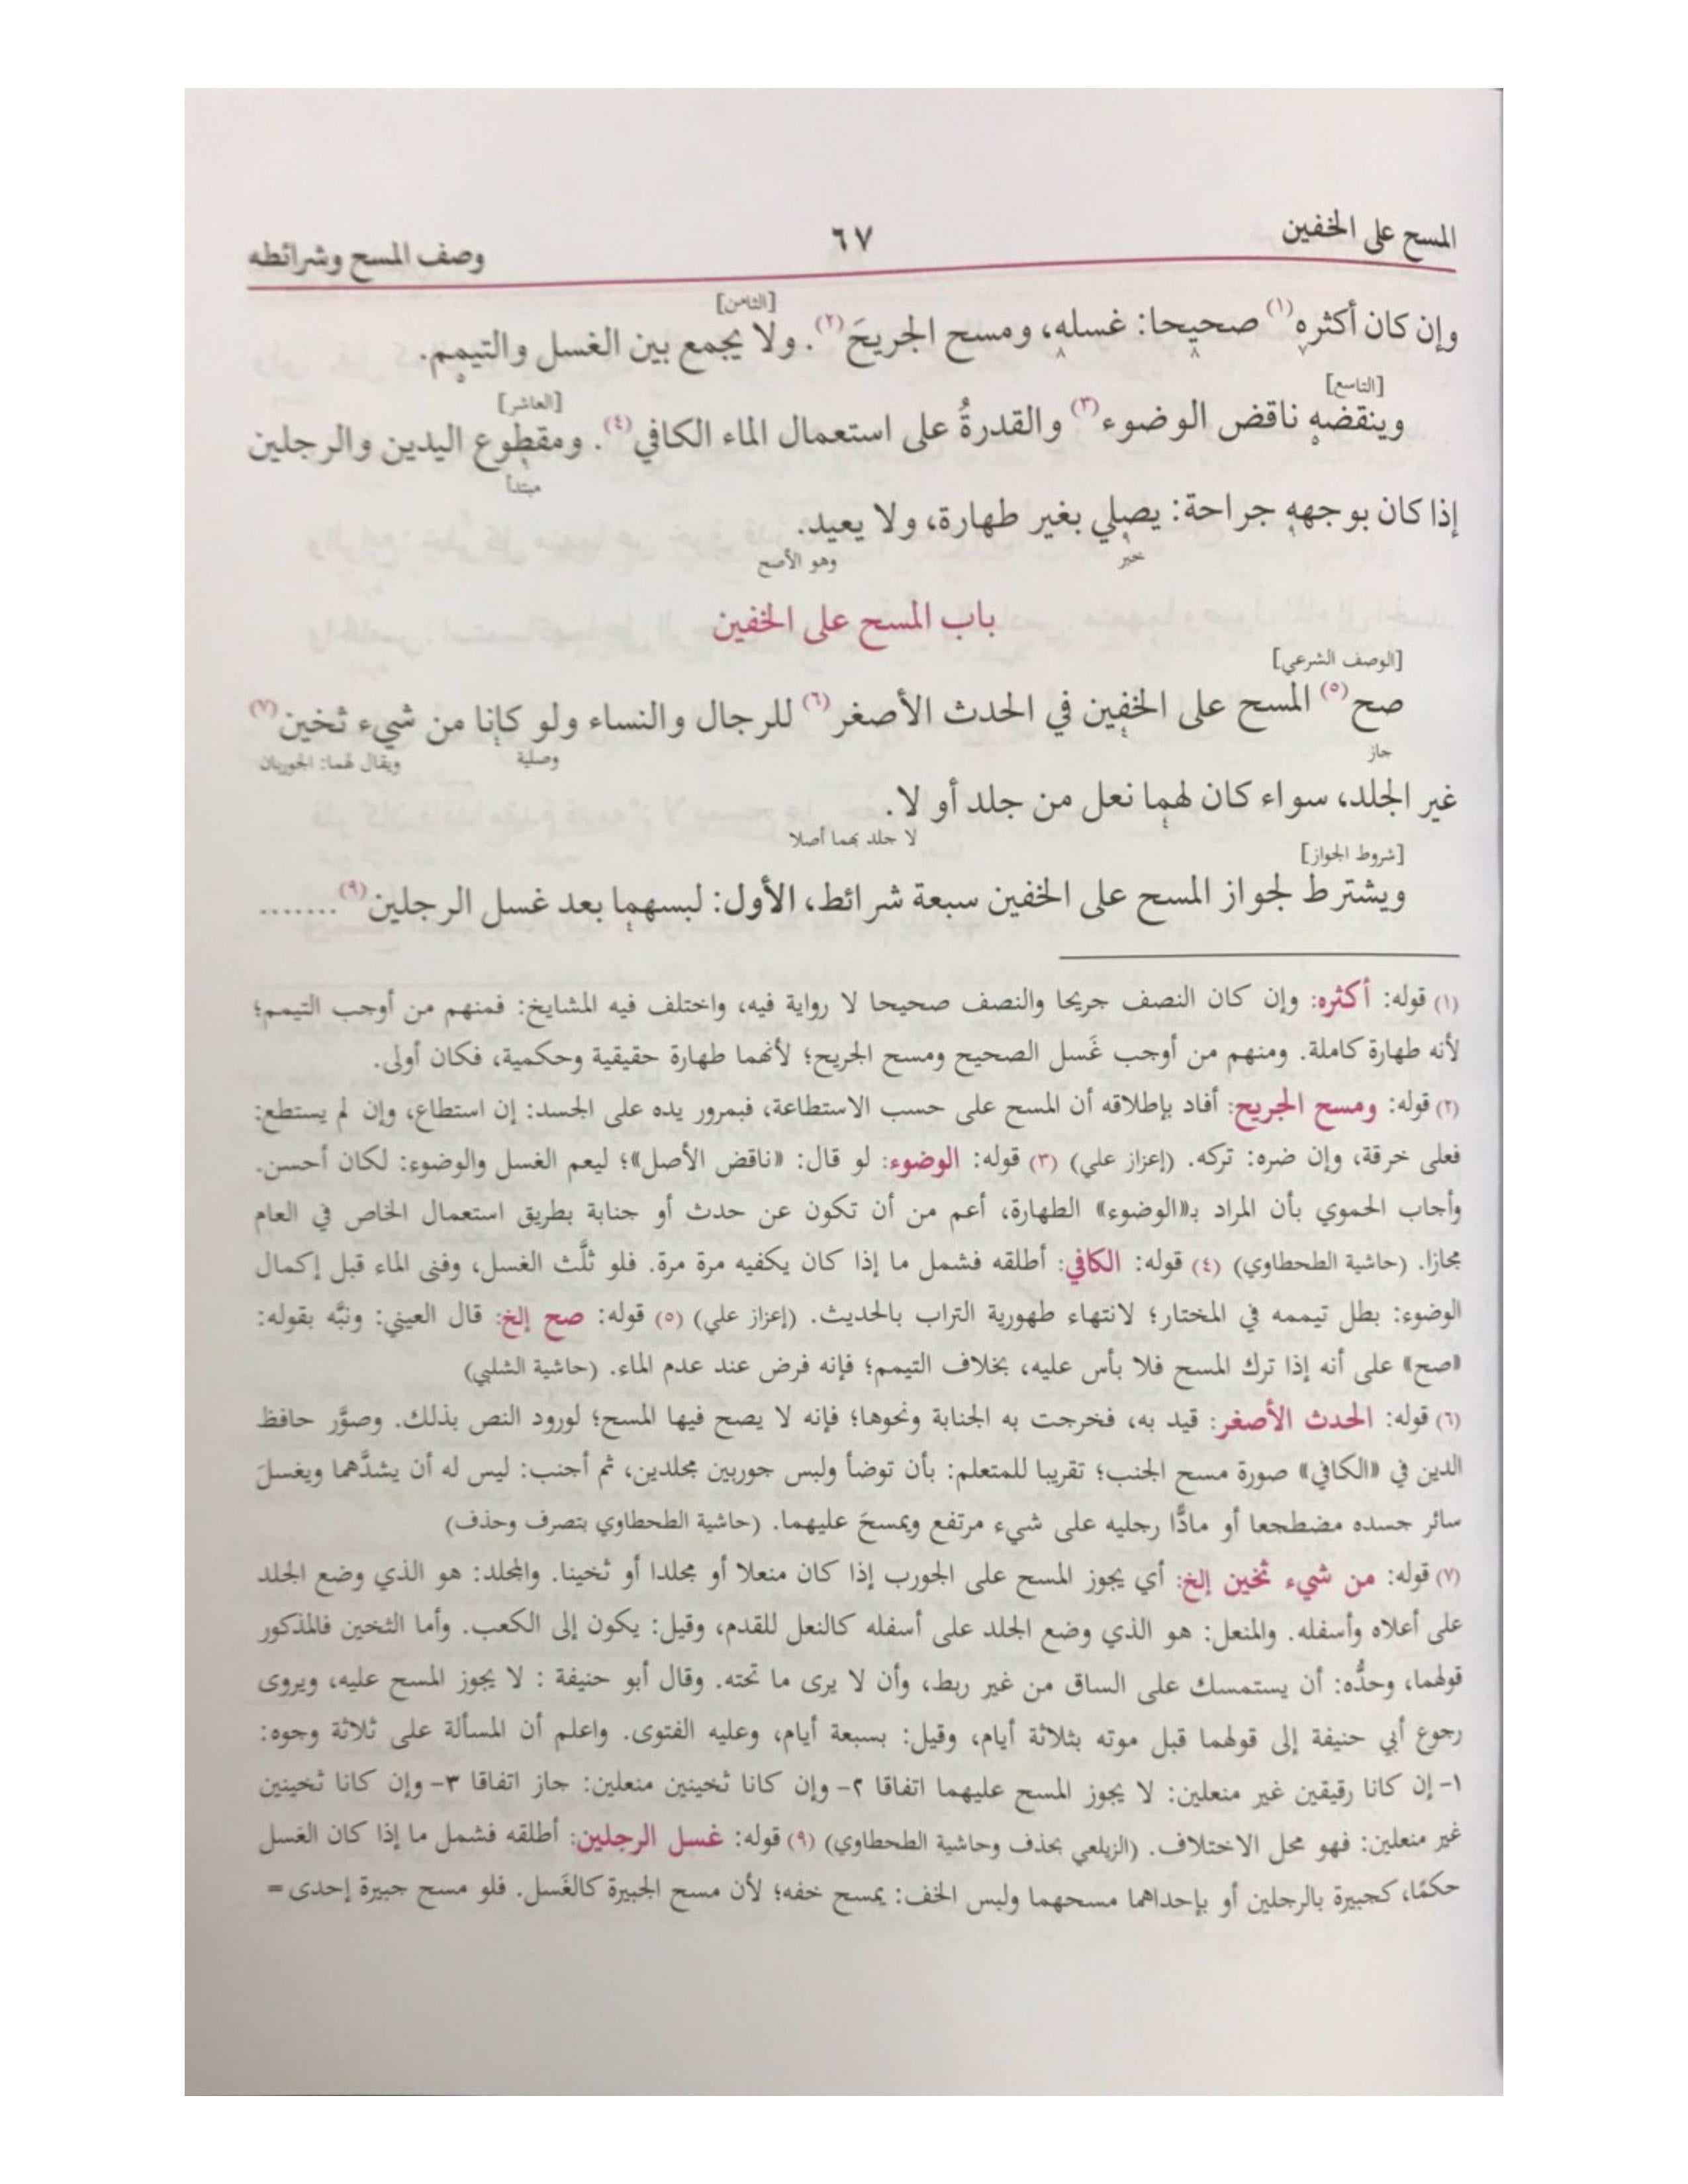 المسح على الخفين ٦٧ وصف المسح وشرائطه
[الثامن]
وإن كان أكثره(١) صحيحا: غسله، ومسح الجريحَ(٢). ولا يجمع بين الغسل والتيمم.
[التاسع] [العاشر]
وينقضه ناقض الوضوء(٣) والقدرةُ على استعمال الماء الكافي(٤). ومقطوع اليدين والرجلين
مبتدأ
إذا كان بوجهه جراحة: يصلي بغير طهارة، ولا يعيد.
خبر وهو الأصح
باب المسح على الخفين
[الوصف الشرعي]
صح(٥) المسح على الخفين في الحدث الأصغر(٦) للرجال والنساء ولو كانا من شيء ثخين(٧)
جاز وصلية ويقال لهما: الجوربان
غير الجلد، سواء كان لهما نعل من جلد أو لا.
لا جلد بهما أصلا
[شروط الجواز]
ويشترط لجواز المسح على الخفين سبعة شرائط، الأول: لبسهما بعد غسل الرجلين(٩).......
(١) قوله: أكثره: وإن كان النصف جريحا والنصف صحيحا لا رواية فيه، واختلف فيه المشايخ: فمنهم من أوجب التيمم؛
لأنه طهارة كاملة. ومنهم من أوجب غَسل الصحيح ومسح الجريح؛ لأنهما طهارة حقيقية وحكمية، فكان أولى.
(٢) قوله: ومسح الجريح: أفاد بإطلاقه أن المسح على حسب الاستطاعة، فبمرور يده على الجسد: إن استطاع، وإن لم يستطع:
فعلى خرقة، وإن ضره: تركه. (إعزاز علي) (٣) قوله: الوضوء: لو قال: «ناقض الأصل»؛ ليعم الغسل والوضوء: لكان أحسن.
وأجاب الحموي بأن المراد بـ«الوضوء» الطهارة، أعم من أن تكون عن حدث أو جنابة بطريق استعمال الخاص في العام
مجازا. (حاشية الطحطاوي) (٤) قوله: الكافي: أطلقه فشمل ما إذا كان يكفيه مرة مرة. فلو ثلَّث الغسل، وفنى الماء قبل إكمال
الوضوء: بطل تيممه في المختار؛ لانتهاء طهورية التراب بالحديث. (إعزاز علي) (٥) قوله: صح إلخ: قال العيني: ونبَّه بقوله:
«صح» على أنه إذا ترك المسح فلا بأس عليه، بخلاف التيمم؛ فإنه فرض عند عدم الماء. (حاشية الشلبي)
(٦) قوله: الحدث الأصغر: قيد به، فخرجت به الجنابة ونحوها؛ فإنه لا يصح فيها المسح؛ لورود النص بذلك. وصوَّر حافظ
الدين في «الكافي» صورة مسح الجنب؛ تقريبا للمتعلم: بأن توضأ ولبس جوربين مجلدين، ثم أجنب: ليس له أن يشدَّهما ويغسلَ
سائر جسده مضطجعا أو مادًّا رجليه على شيء مرتفع ويمسحَ عليهما. (حاشية الطحطاوي بتصرف وحذف)
(٧) قوله: من شيء ثخين إلخ: أي يجوز المسح على الجورب إذا كان منعلا أو مجلدا أو ثخينا. والمجلد: هو الذي وضع الجلد
على أعلاه وأسفله. والمنعل: هو الذي وضع الجلد على أسفله كالنعل للقدم، وقيل: يكون إلى الكعب. وأما الثخين فالمذكور
قولهما، وحدُّه: أن يستمسك على الساق من غير ربط، وأن لا يرى ما تحته. وقال أبو حنيفة : لا يجوز المسح عليه، ويروى
رجوع أبي حنيفة إلى قولهما قبل موته بثلاثة أيام، وقيل: بسبعة أيام، وعليه الفتوى. واعلم أن المسألة على ثلاثة وجوه:
١- إن كانا رقيقين غير منعلين: لا يجوز المسح عليهما اتفاقا ٢- وإن كانا ثخينين منعلين: جاز اتفاقا ٣- وإن كانا ثخينين
غير منعلين: فهو محل الاختلاف. (الزيلعي بحذف وحاشية الطحطاوي) (٩) قوله: غسل الرجلين: أطلقه فشمل ما إذا كان الغسل
حكمًا، كجبيرة بالرجلين أو بإحداهما مسحهما ولبس الخف: يمسح خفه؛ لأن مسح الجبيرة كالغَسل. فلو مسح جبيرة إحدى=